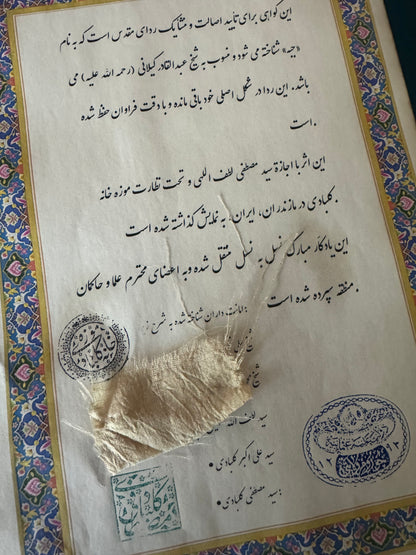 این گواهی برای تأیید اصالت و مشایک ردای مقدس است که به نام
«جبه» شناخته می شود و منسوب به شیخ عبدالقادر گیلانی (رحمه الله علیه) می
باشد. این ردا در شکل اصلی خود باقی مانده و با دقت فراوان حفظ شده
است.
این اثر با اجازة سید مصطفی لطف اللهی و تحت نظارت موزه خانه
گلبادی در مازندران، ایران، به نمایش گذاشته شده است.
این یادگار مبارک نسل به نسل منتقل شده و به اعضای محترم علما و حاکمان
منطقه سپرده شده است.
امانت داران شناخته شده به شرح
شیخ
شیخ
سید لطف الله
سید علی اکبر گلبادی•
سید مصطفی گلبادی•